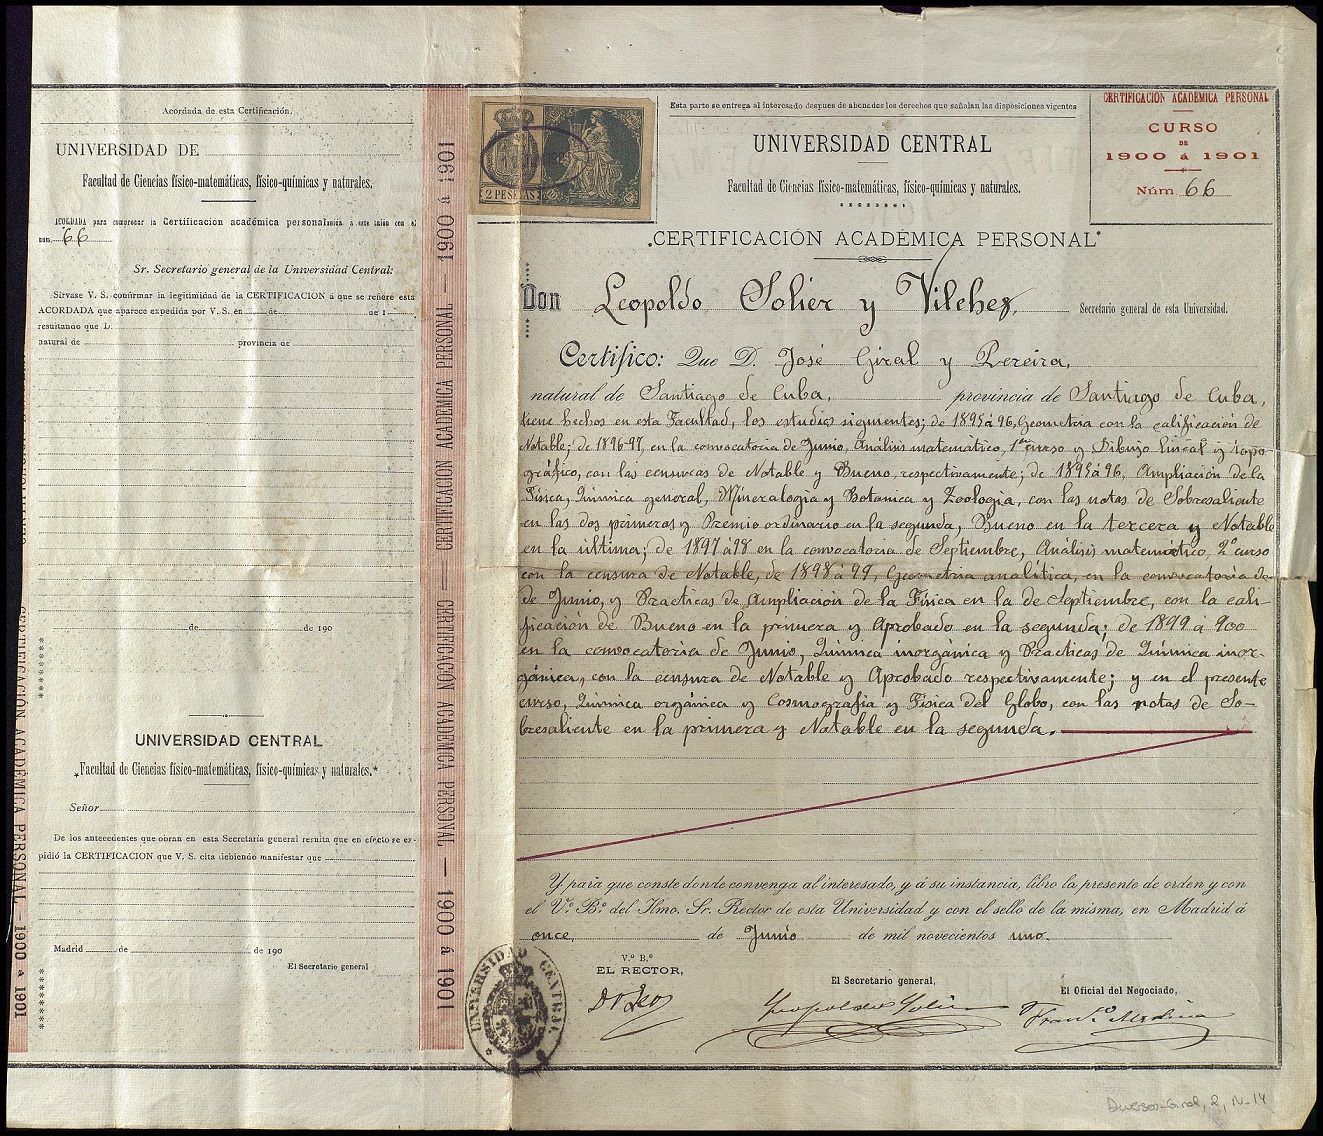 Acordada de esta Certificación.
UNIVERSIDAD DE
Facultad de Ciencias físico-matemáticas, físico-químicas y naturales.
ACORDADA para comprobar la Certificación académica personal á este unido con el
núm. 66
Sr. Secretario general de la Universidad Central:
Sírvase V. S. confirmar la legitimidad de la CERTIFICACION á que se refiere esta
ACORDADA que aparece expedida por V. S. en de de 1
resultando que D.
natural de provincia de
de de 190
UNIVERSIDAD CENTRAL
Facultad de Ciencias físico-matemáticas, físico-químicas y naturales.
Señor
De los antecedentes que obran en esta Secretaría general resulta que en efecto se ex-
pidió la CERTIFICACION que V. S. cita debiendo manifestar que
Madrid de de 190
El Secretario general
CERTIFICACIÓN ACADÉMICA PERSONAL — 1900 á 1901
1900 á 1901 — CERTIFICACIÓN ACADÉMICA PERSONAL — CERTIFICACIÓN ACADÉMICA PERSONAL — 1900 á 1901
2 PESETAS
Esta parte se entrega al interesado despues de abonados los derechos que señalan las disposiciones vigentes
UNIVERSIDAD CENTRAL
Facultad de Ciencias físico-matemáticas, físico-químicas y naturales.
CERTIFICACIÓN ACADÉMICA PERSONAL
CURSO
DE
1900 á 1901
Núm. 66
CERTIFICACIÓN ACADÉMICA PERSONAL
Don Leopoldo Solier y Vilches, Secretario general de esta Universidad.
Certifico: Que D. José Giral y Pereira,
natural de Santiago de Cuba, provincia de Santiago de Cuba,
tiene hechos en esta Facultad, los estudios siguientes; de 1895 á 96, Geometria con la calificación de
Notable; de 1896-97, en la convocatoria de Junio, Análisis matemático, 1er curso y Dibujo lineal y topo
gráfico, con las censuras de Notable y Bueno, respectivamente; de 1895 á 96, Ampliación de la
Física, Química general, Mineralogia y Botanica y Zoologia, con las notas de Sobresaliente
en las dos primeras y Premio ordinario en la segunda, Bueno en la tercera y Notable
en la última; de 1897 á 98 en la convocatoria de Septiembre, Análisis matemático, 2º curso
con la censura de Notable, de 1898 á 99, Geometria analítica, en la convocatoria de
de Junio, y Practicas de Ampliación de la Física en la de Septiembre, con la cali-
ficación de Bueno en la primera y Aprobado en la segunda; de 1899 á 900
en la convocatoria de Junio, Química inorgánica y Practicas de Química inor-
gánica, con la censura de Notable y Aprobado respectivamente; y en el presente
curso, Química orgánica y Cosmografia y Física del Globo, con las notas de So-
bresaliente en la primera y Notable en la segunda.
Y para que conste donde convenga al interesado, y á su instancia, libro la presente de orden y con
el V.º B.º del Ilmo. Sr. Rector de esta Universidad y con el sello de la misma, en Madrid á
once, de Junio de mil novecientos uno.
V.º B.º
EL RECTOR,
El Secretario general,
El Oficial del Negociado,
Leopoldo Solier
Franco Medina
UNIVERSIDAD CENTRAL
Diversos-Giral, 2, N-14